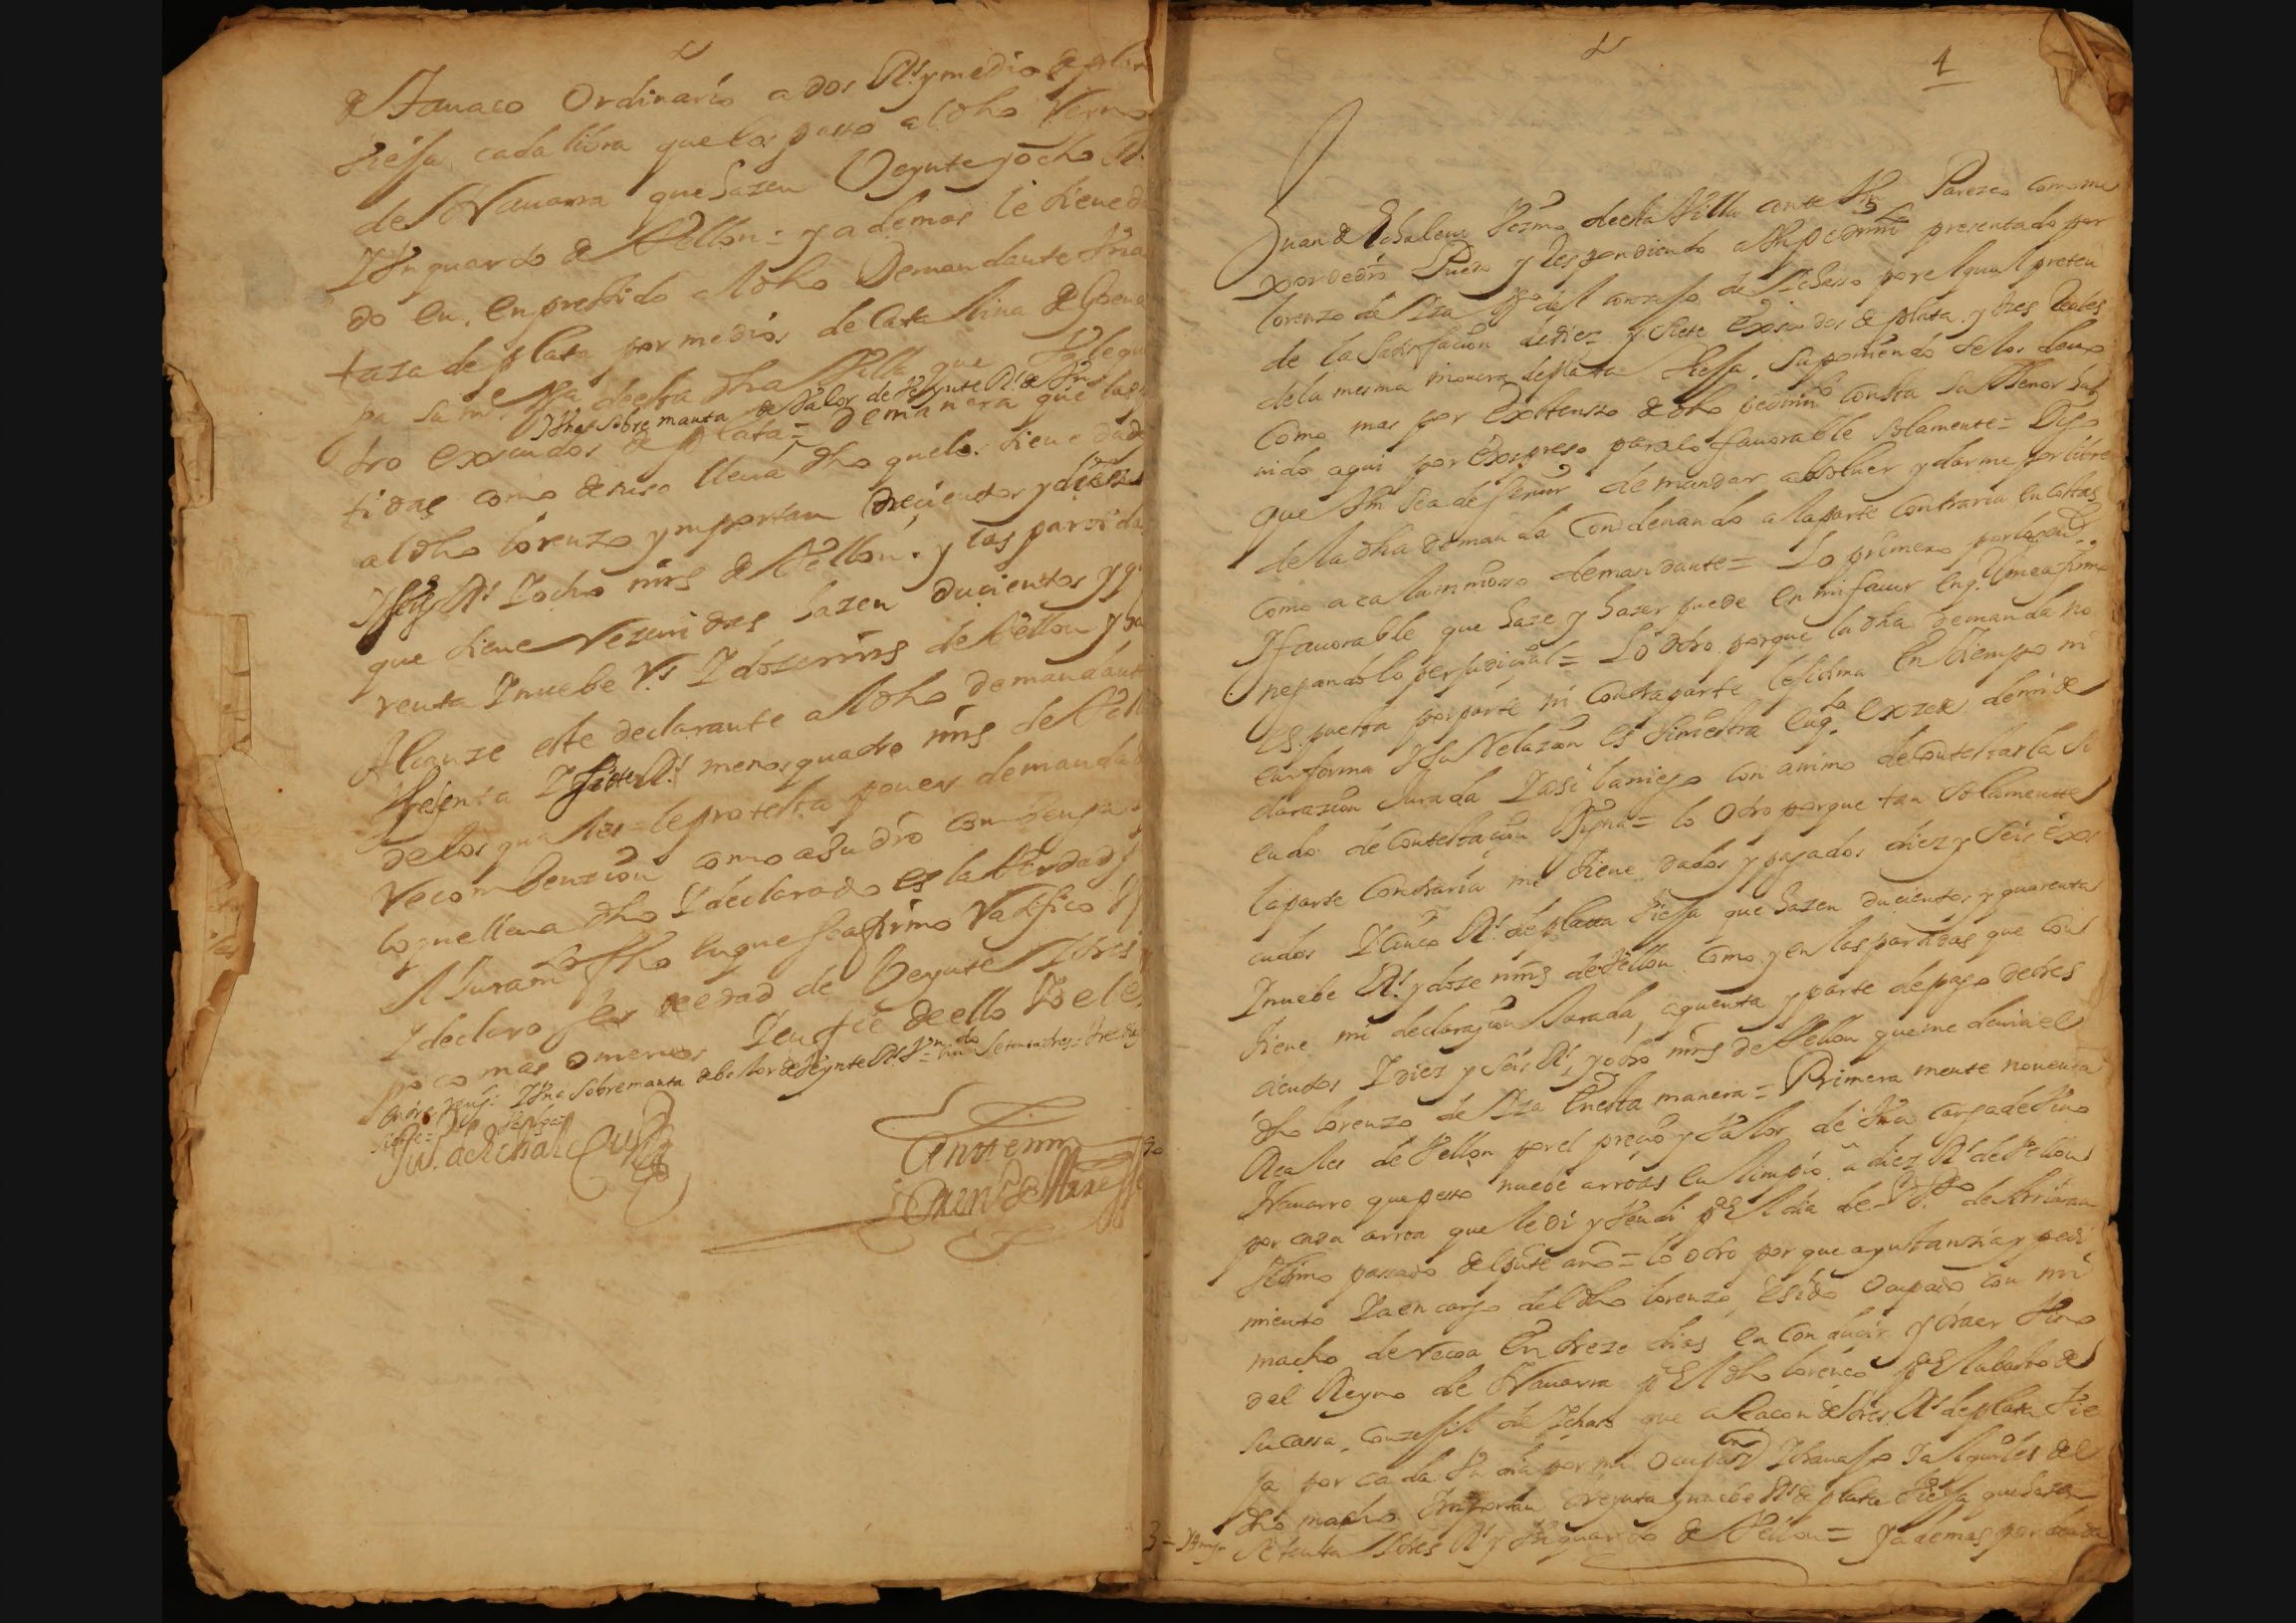 de Tauaco Ordinario a dos Rs. y medio de plata
biessa cada libra que los passo al dho
de Nauarra que hazen Veynte y ocho Rs.
Y Vn quarto de Vellon = y ademas le tiene da
do en enprestido al dho Demandante Vna
taza de plata por medio de Catalina de
pa su m.e Vza. desta dha Villa que
Yttem Vna sobre manta de Valor de Veynte Rs. de Vn
tro escudos de plata = De manera que las par
tidas como de suso lleua dho que le tiene dado
al dho lorenzo ymportan trecientos y diez
y seis Rs. Y ocho mrs de Vellon. y las partidas
que tiene Rezeuidas hazen ducientos y qua
renta Y nuebe Rs. Y doze mrs de Vellon y
Alcanze este declarante al dho demandante
Sesenta Y siete Rs. menos quatro mrs de Vellon
de los quales le protesta poner demanda de
Recombenzion como a su dro combenga
lo que lleua dho Y declarado es la Verdad
el Juramto. fho en que se afirmo Ratifico
Y declaro ser de edad de Veynte Y tres
poco mas o menos Y en fee de ello
Vna sobremanta de Valor de Veynte Rs.
Ju. de Echal
Ante mi
1
Juan de Echalecu Vezino desta Villa ante Vm Parezco como me
xor de dro Puedo y Respondiendo a Vn pedimto presentado por
lorenzo de Yza Vzo. del conzejo de Ycharo por el qual preten
de la Satisfacion de diez y siete Escudos de plata y tres Reales
de la mesma moneda de plata biessa. Suponiendo selos deuo
como mas por Exttensso de dho pedimto consta su thenor hau
uido aqui por Expreso para lo fauorable solamente = Digo
que Vm sea de seruir de mandar absoluer y darme por libre
de la dha demanda Condenando a la parte Contraria en costas
como a calumnioso demandante = Lo primero por lo
Y fauorable que haze y hazer puede en mi fauor en q. Vm se afirma
negando lo perjudicial = Lo otro porque la dha demanda no
es puesta por parte ni Contra parte lexitima En tiempo ni
en forma Y su Relazion es siniestra en q.to exzede de mi de
clarazion Jurada Y asi la niego con animo de contestar la si
endo de contestacion Digna = lo Otro porque tan solamente
la parte Contraria me tiene dados y pagados diez y seis exs
cudos Y Cinco Rs. de plata biessa que hazen ducientos y quarenta
Y nuebe Rs. y doze mrs de Vellon como y en las partidas que con
tiene mi declarazion Jurada, a quenta y parte de pago de tres
cientos Y diez y seis Rs. y ocho mrs de Vellon que me deuia el
dho lorenzo de Yza En esta manera = Primera mente nouenta
Reales de Vellon por el precio y Valor de Vna carga de Vino
Nauarro que pesso nuebe arrobas en limpio a diez Rs. de Vellon
por cada arroa que le di y Vendi para el dia de
Vltimo passado deste pnte año = lo otro por que a ynstanzia y pedi
miento Y a en cargo del dho lorenzo, e sido Ocupado con mi
macho de recoa En treze dias en Conducir y traer Vino
del Reyno de Nauarra para el dho lorenco para el abasto de
su cassa, conzejil de Ycharo que a Racon de tres Rs. de plata bie
ja por cada Vn dia por mi Ocupaon Y trauajo Y alquiler del
dho macho Ymportan treynta y nuebe Rs. de plata biessa que hazen
Setenta Y tres Rs. y Vn quarto de Vellon = y ademas por